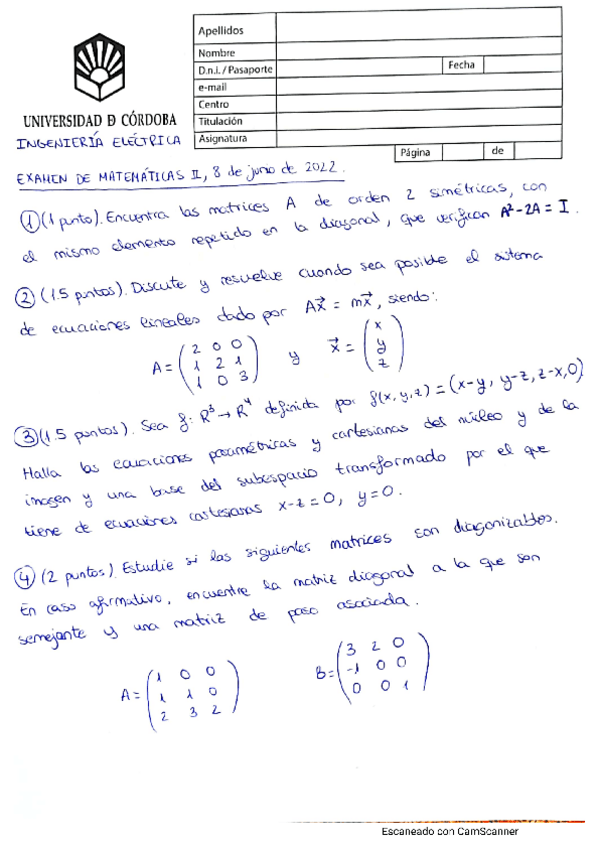 Apellidos
Nombre
D.n.i. / Pasaporte
Fecha
e-mail
Centro
Titulación
Asignatura
Página
de
UNIVERSIDAD D CÓRDOBA
INGENIERÍA ELÉCTRICA
EXAMEN DE MATEMÁTICAS II, 8 de junio de 2022.
① (1 punto). Encuentra las matrices A de orden 2 simétricas, con
el mismo elemento repetido en la diagonal, que verifican A²-2A = I.
② (1.5 puntos). Discute y resuelve cuando sea posible el sistema
de ecuaciones lineales dado por Ax⃗ = mx⃗, siendo:
A = (2 0 0
1 2 1
1 0 3) y x⃗ = (x
y
z)
③ (1.5 puntos). Sea f: R³ → R⁴ definida por f(x,y,z) = (x-y, y-z, z-x, 0)
Halla las ecuaciones paramétricas y cartesianas del núcleo y de la
imagen y una base del subespacio transformado por el que
tiene de ecuaciones cartesianas x-z=0, y=0.
④ (2 puntos) Estudie si las siguientes matrices son diagonizables.
En caso afirmativo, encuentre la matriz diagonal a la que son
semejante y una matriz de paso asociada.
A = (1 0 0
1 1 0
2 3 2) B = (3 2 0
-1 0 0
0 0 1)
Escaneado con CamScanner